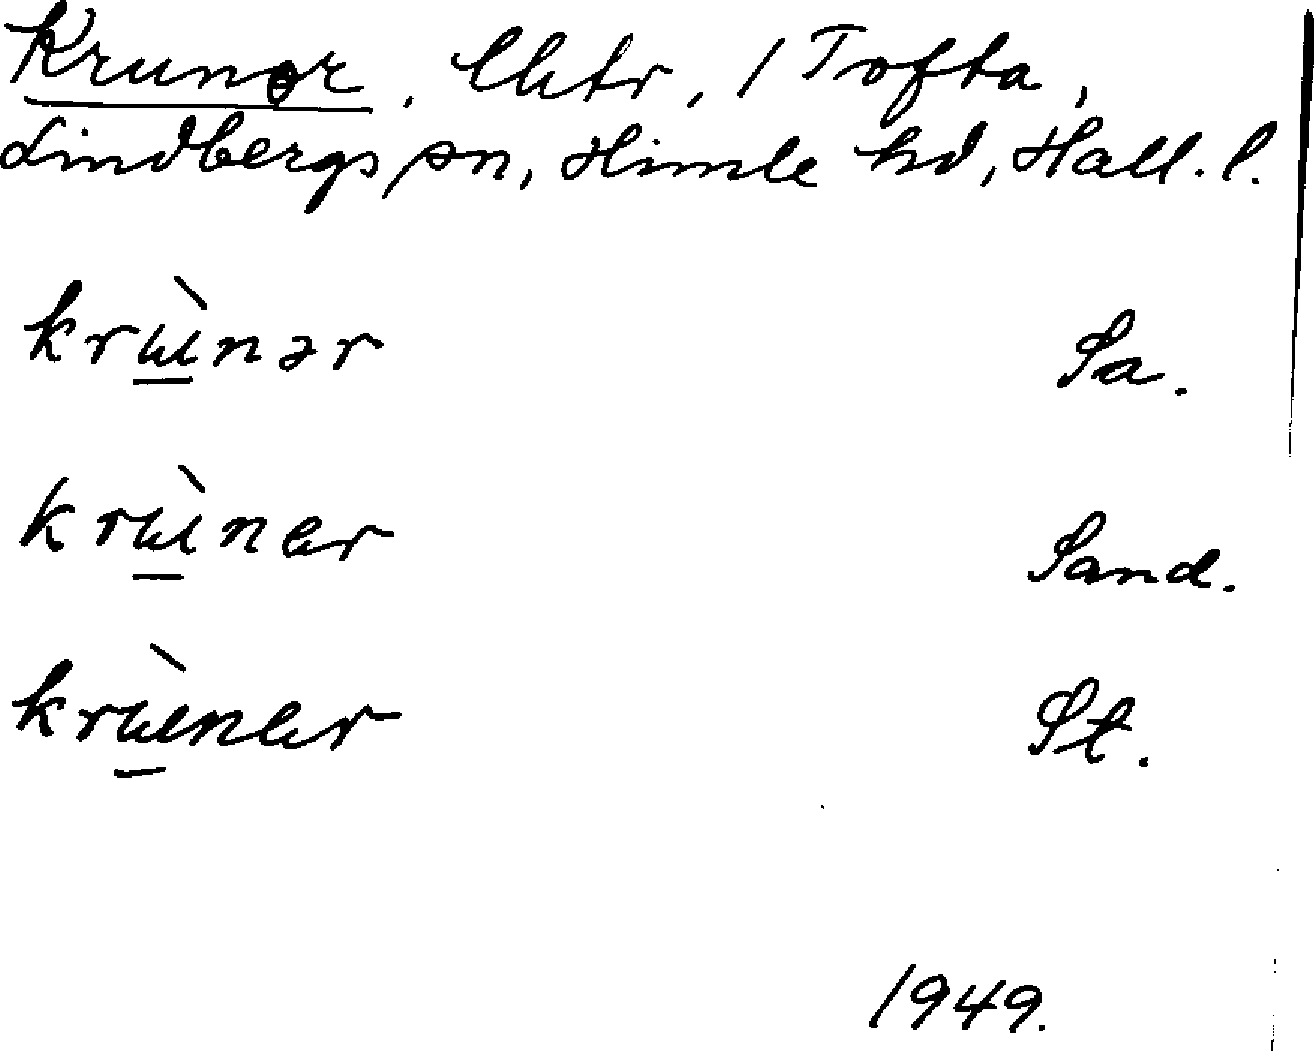 Kruner, lhtr, 1 Tofta,
Lindbergs sn, Himle hd, Hall. l.
krɯ̀nər Sa.
krɯ̀nɐr Sand.
krɯ̀nɐr St.
1949.